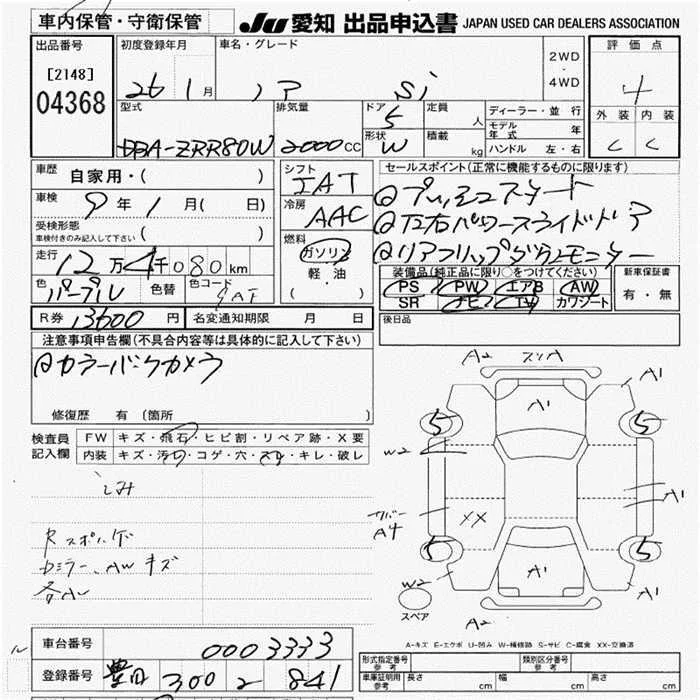 車内保管・守衛保管 JU 愛知 出品申込書 JAPAN USED CAR DEALERS ASSOCIATION
出品番号 初度登録年月 車名・グレード 2WD・4WD 評価点
[2148] 26 1月 ノア Si 4
04368 型式 排気量 ドア 5 定員 人 ディーラー・並行 外装 内装
DBA-ZRR80W 2000cc 形状 W 積載 kg モデル年式 年 C C
ハンドル 左・右
車歴 自家用・( ) シフト IAT セールスポイント(正常に機能するものに限ります)
車検 9年1月( 日) 冷房 AAC @プッシュスタート
受検形態 ( ) @左右パワースライドドア
車検付きのみ記入して下さい 燃料 ガソリン @リアフリップダウンモニター
走行 12万4千080km 軽・油 装備品(純正品に限り○をつけてください) 新車保証書
色 パープル 色替 色コード ( ・ ) PS PW エアB AW 有・無
SR ナビ TV カワシート
R券 13600円 名変通知期限 月 日 後日品
注意事項申告欄(不具合内容等は具体的に記入して下さい)
@カラーバックカメラ
修復歴 有 (箇所 )
検査員記入欄 FW キズ・飛石・ヒビ割・リペア跡・X要
内装 キズ・汚れ・コゲ・穴・スレ・キレ・破レ
シミ
Rスポ
ドミラー、AWキズ
各A
A2 スリA A1
A1
5 5
W2
A1
A4 XX
5 5
A1
W2 A1
スペア A2
A-キズ E-エクボ U-凹み W-補修跡 S-サビ C-腐食 XX-交換済
車台番号 0003333
登録番号 豊田 300 る 841
形式指定番号 参考 類別区分番号 参考
車庫証明用 参考 長さ cm 幅 cm 高さ cm